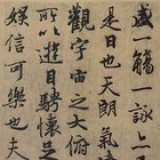 盛一觴一詠
是日也天朗氣清
觀宇宙之大俯
所以遊目騁懷足
娛信可樂也夫